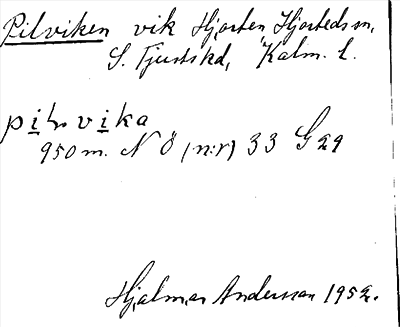 Pilviken vik Hjorten Hjorteds sn,
S. Tjusts hd, Kalm. l.
pilvika
950 m. N Ö (n:r) 33 G 29
Hjalmar Andersson 1952.